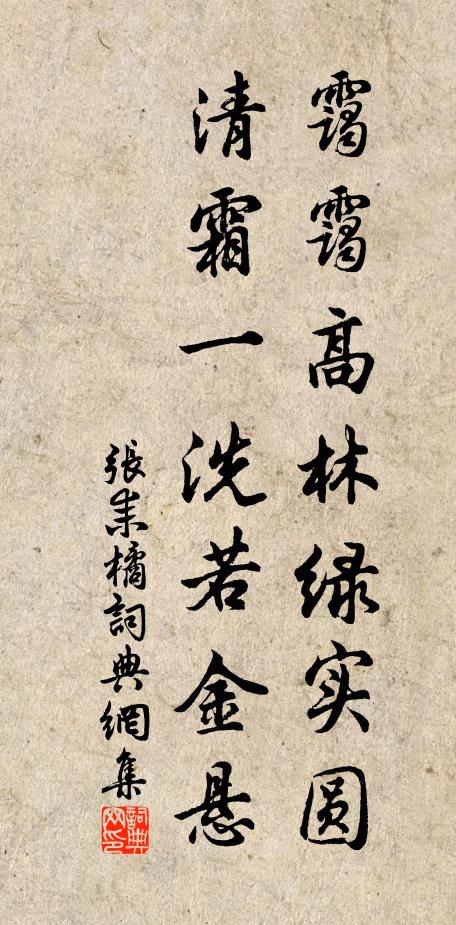 霭霭高林绿实圆
清霜一洗若金悬
張耒橘詞典網集
詞典網印